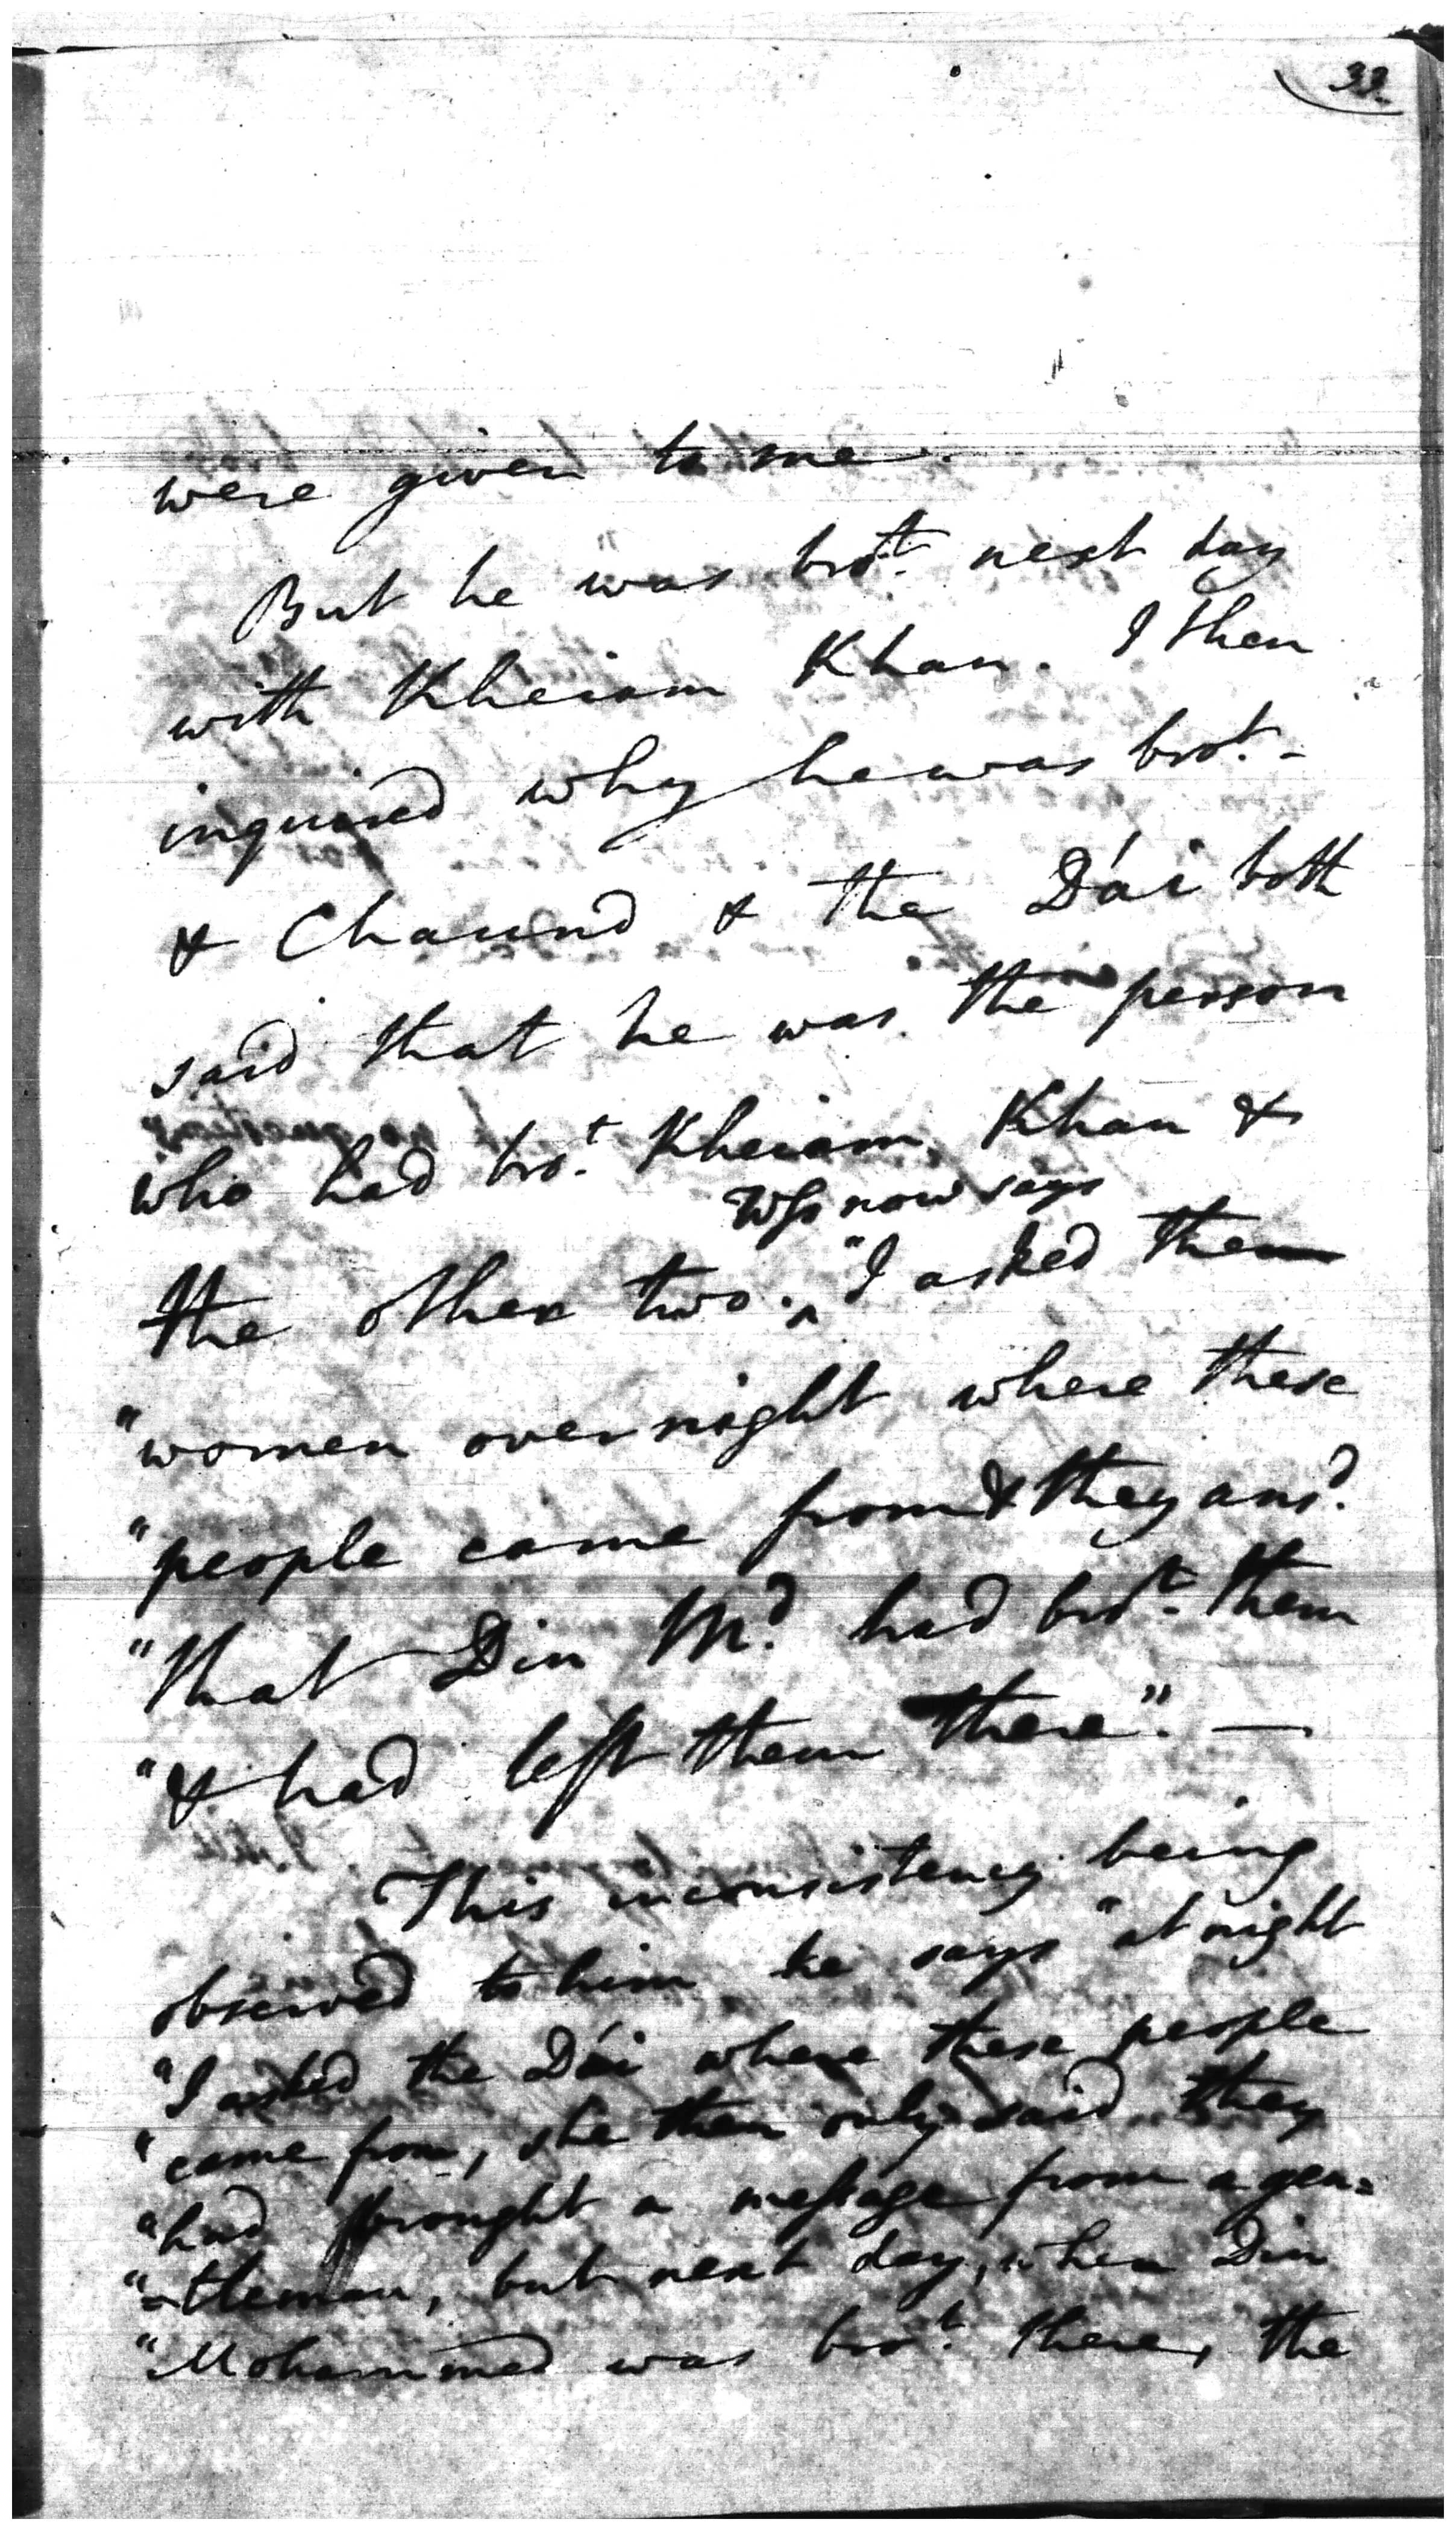 33.
were given to me.
But he was bro.t next day
with Kheiam Khan. I then
inquired why he was bro.t -
& Chaund & the Dái both
said that he was the person
who had bro.t Kheiam Khan &
Wss now says
the other two. ^ "I asked the
"women over night where these
"people came from & they ans.d
"that Din M.d had bro.t them
"& had left them there". —
This inconsistency being
observed to him he says "at night
"I asked the Dái where these people
"came from, she then only said they
"had brought a message from a gen=
"=tleman, but next day, when Din
"Mohammed was bro.t there, the